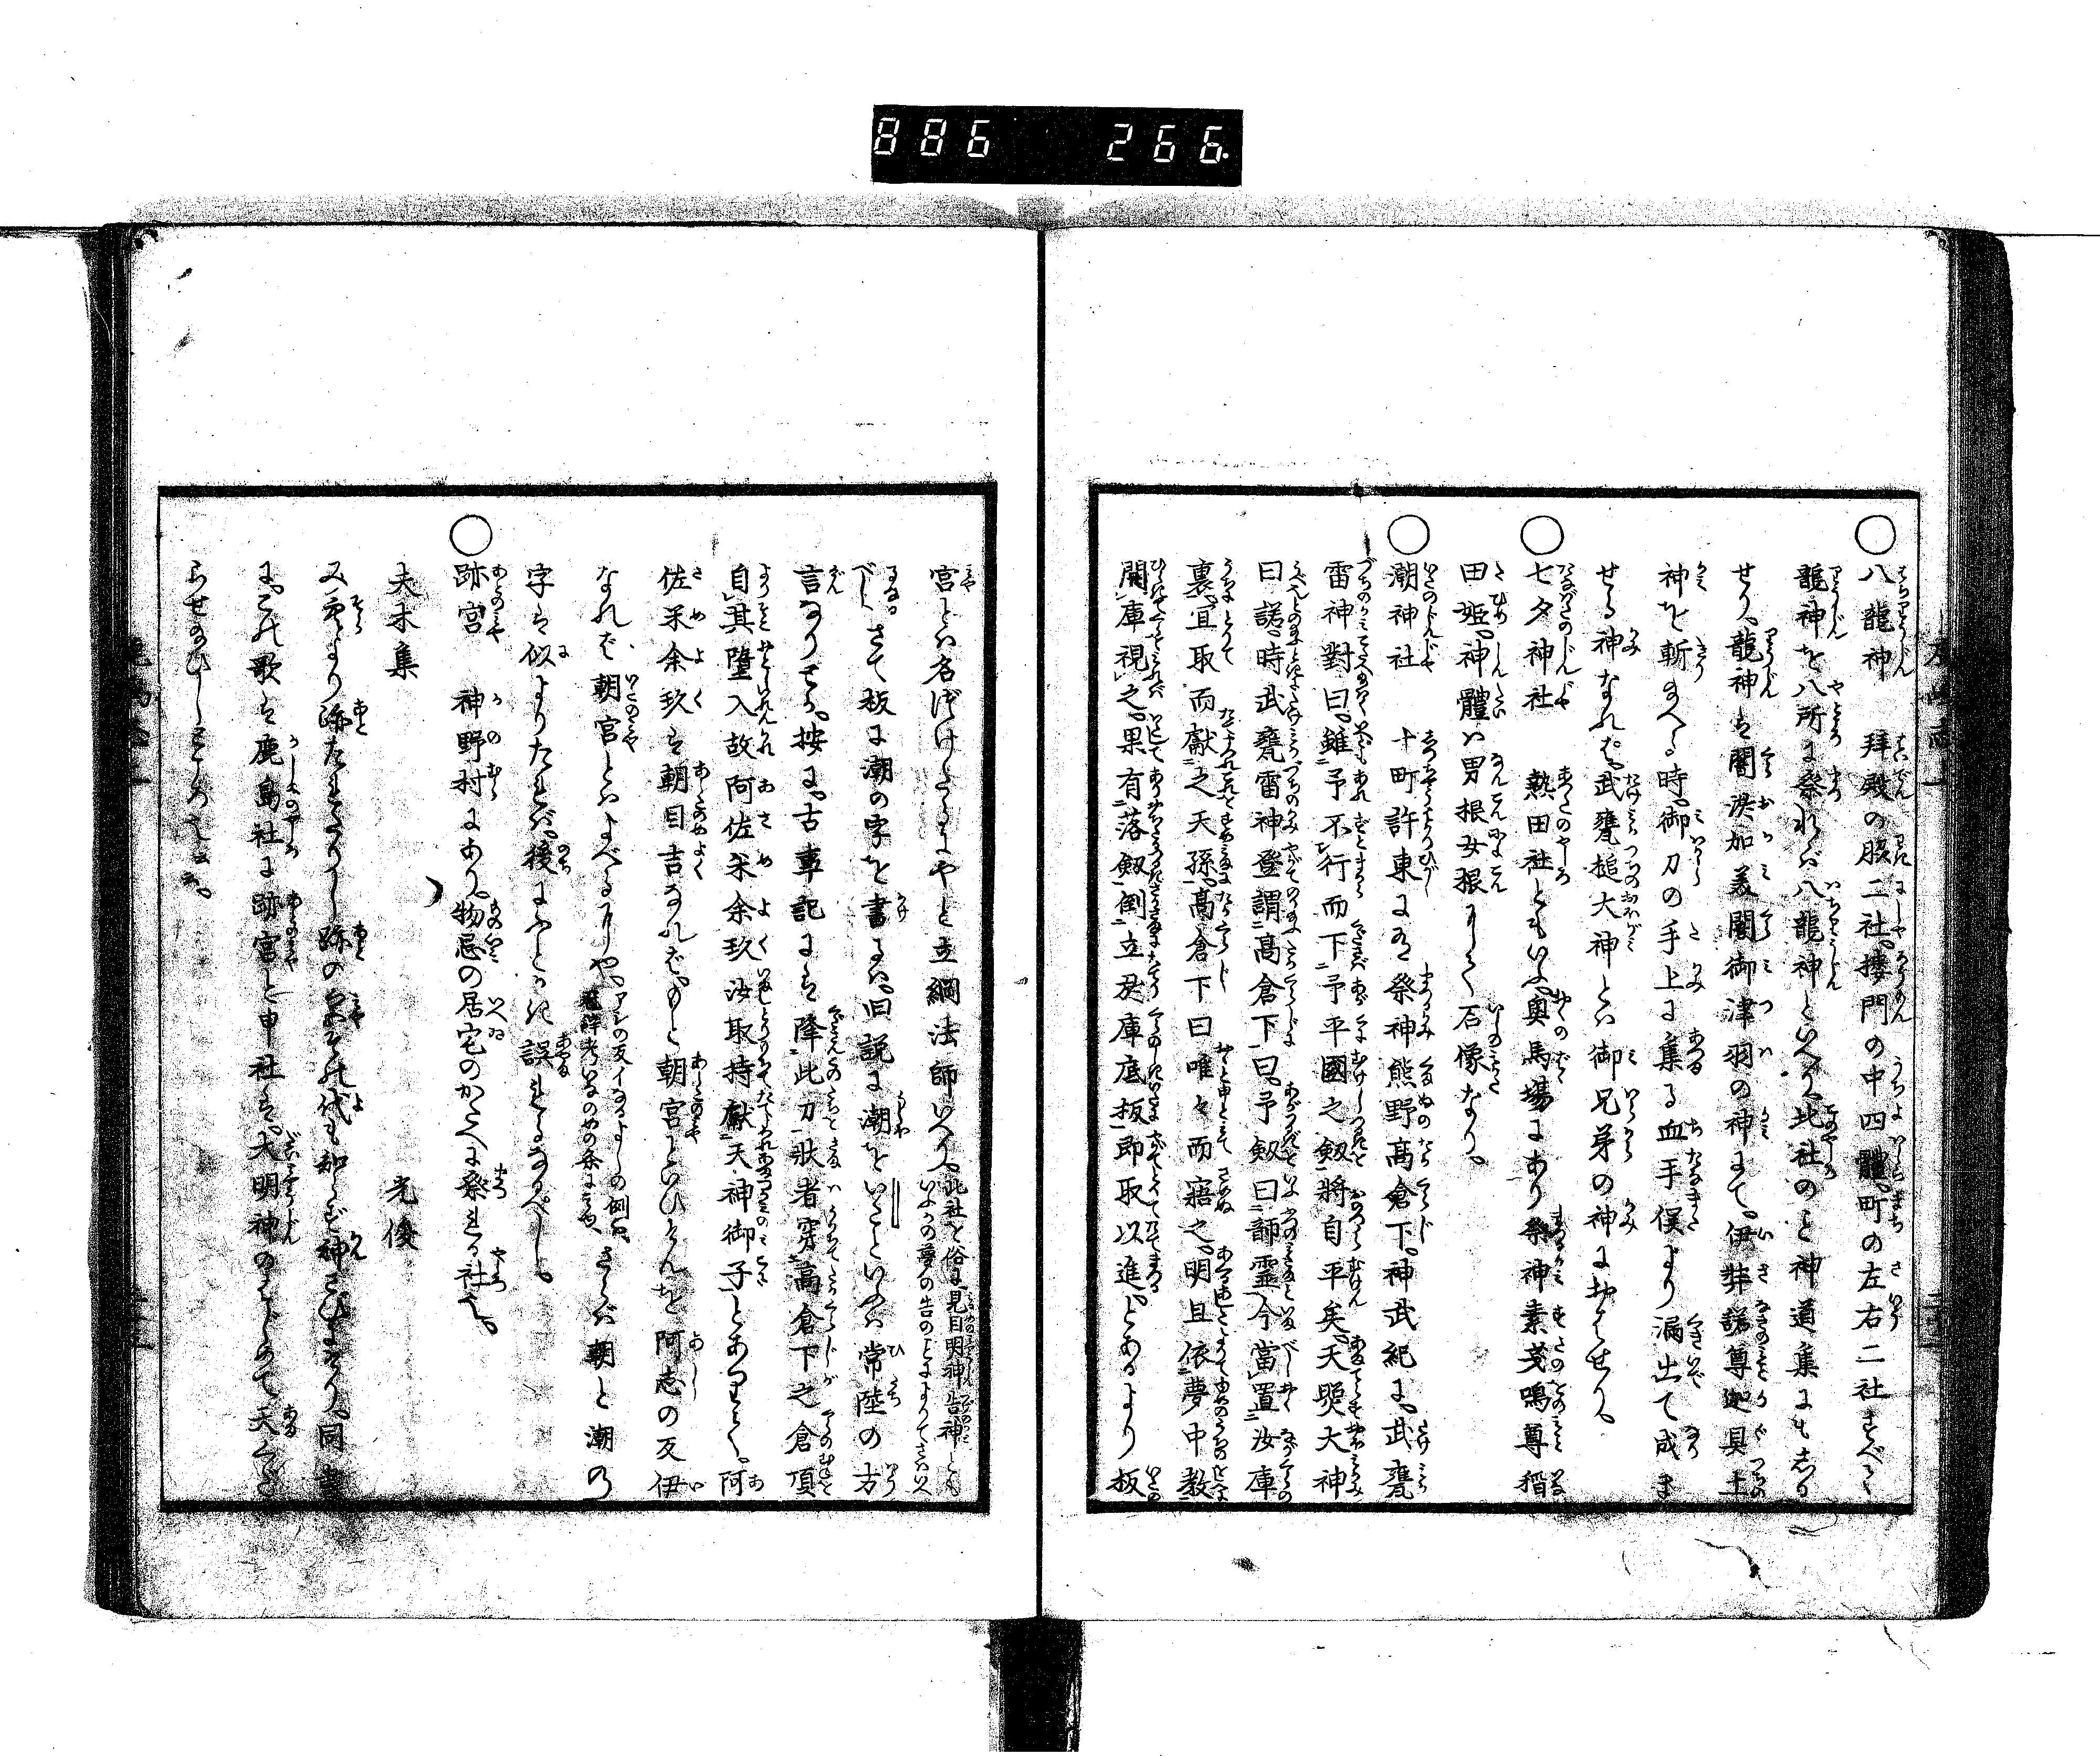 886 266.
○八龍神 拜殿の脇二社樓門の中四體町の左右二社すべて
龍神を八所に祭れば八龍神といへり此社のこと神道集にもしる
せり龍神は闇淤加美闇御津羽の神にて伊弉諾尊迦具土
神を斬まへる時御刀の手上に集る血手俣より漏出て成ま
せる神なれば武甕槌大神とは御兄弟の神におはせり
○七夕神社 熱田社ともいふ奥馬場にあり祭神素戔嗚尊稲
田姫神體は男根女根にて石像なり
○潮神社 十町許東に有祭神熊野高倉下神武紀に武甕
雷神對曰雖予不行而下予平國之劔將自平矣天照大神
曰諾時武甕雷神登謂高倉下曰予劔曰韴靈今當置汝庫
裏宜取而獻之天孫高倉下曰唯々而寤之明旦依夢中教
開庫視之果有落劔倒立於庫底板即取以進とあるより板
宮とは名づけしにやと立綱法師いへり此社を俗に見目明神告神とも
いふは夢の告のことによりてさはいへ
るなるべしさて板に潮の字を書るは旧説に潮をいたといふは常陸の方
言なりとぞ按に古事記には降此刀状者穿高倉下之倉頂
自其墮入故阿佐米余玖汝取持獻天神御子とありて阿
佐米余玖は朝目吉なればもと朝宮といひけんを阿志の反伊
なれば朝宮とはよべるにやアシの反イなるよしの例は
さらば朝と潮の
字は似よりたれば後にふとかき誤れるなるべし
○跡宮 神野村にあり物忌の居宅のかたへに祭れる社也
夫木集 光俊
み空より跡たれそめし跡の宮その代も知らず神さびにけり同書
に此歌は鹿島社に跡宮と申社は大明神のはじめて天くだ
らせ給ひしところと云々